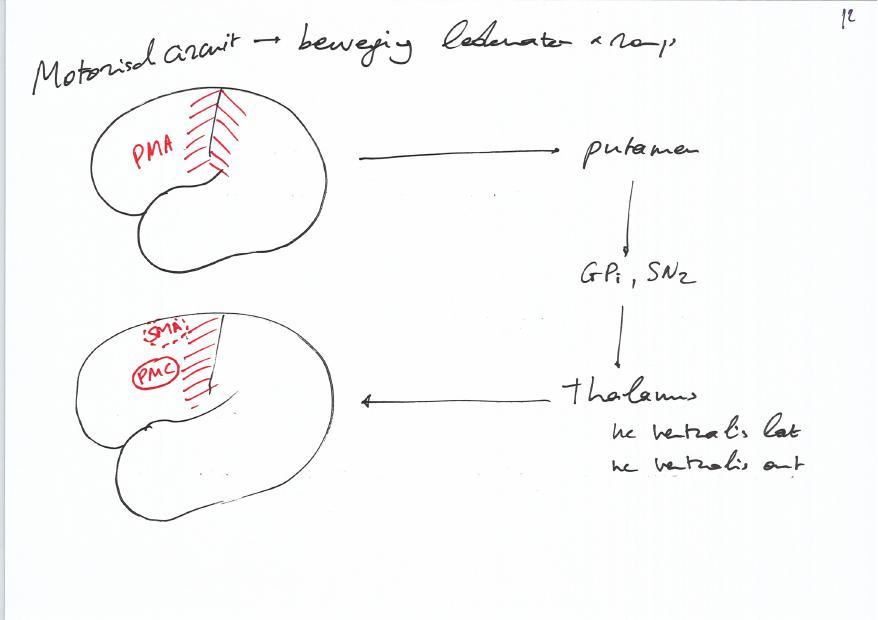 12
Motorisch circuit → beweging ledematen & romp
PMA
putamen
GPi, SNr
SMA
PMC
Thalamus
nc ventralis lat
nc ventralis ant